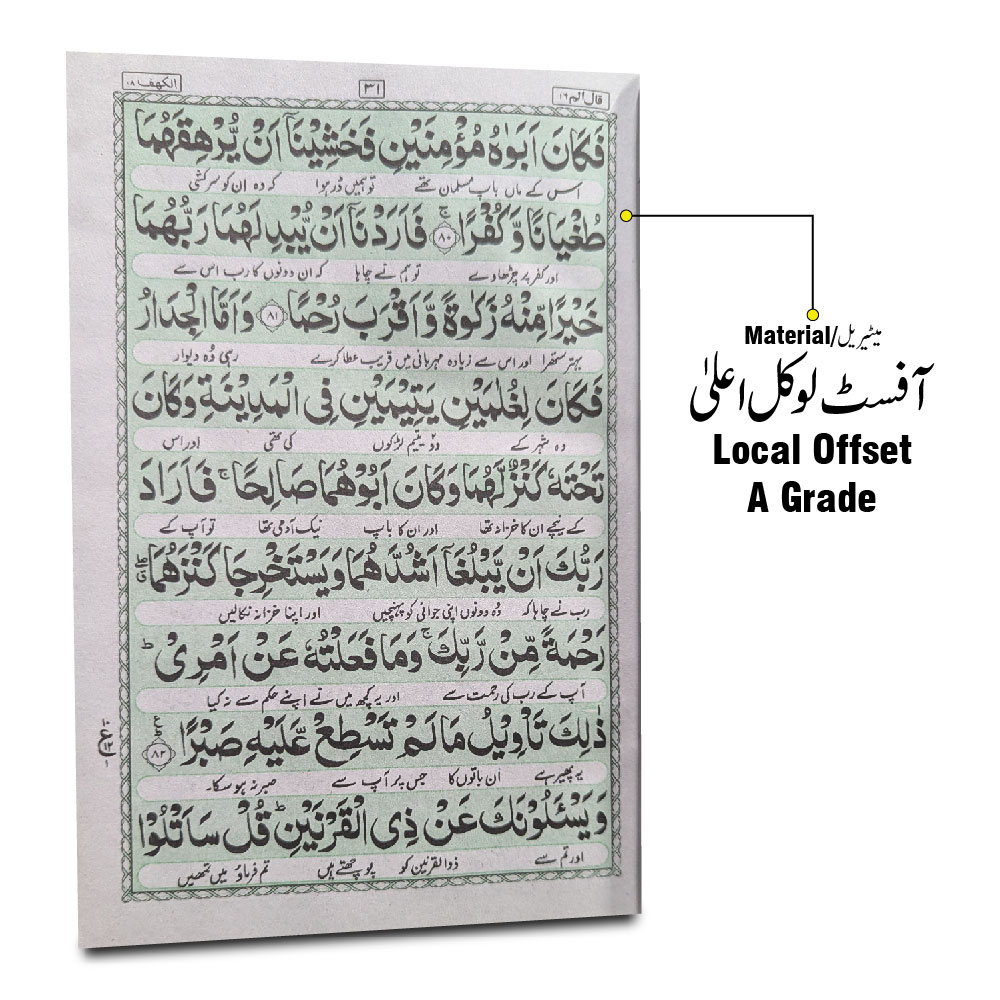 الکھف ۱۸
۳۱
قال الم ۱۶
فَكَانَ اَبَوٰهُ مُؤْمِنَيْنِ فَخَشِيْنَاۤ اَنْ يُّرْهِقَهُمَا
اس کے ماں باپ مسلمان تھے تو ہمیں ڈر ہوا کہ وہ ان کو سرکشی
طُغْيَانًا وَّكُفْرًا ۚ ۸۰ فَاَرَدْنَاۤ اَنْ يُّبْدِلَهُمَا رَبُّهُمَا
اور کفر پر چڑھاوے تو ہم نے چاہا کہ ان دونوں کا رب اس سے
خَيْرًا مِّنْهُ زَكٰوةً وَّاَقْرَبَ رُحْمًا ۸۱ وَاَمَّا الْجِدَارُ
بہتر ستھرا اور اس سے زیادہ مہربانی میں قریب عطا کرے رہی وہ دیوار
فَكَانَ لِغُلٰمَيْنِ يَتِيْمَيْنِ فِى الْمَدِيْنَةِ وَكَانَ
وہ شہر کے دو یتیم لڑکوں کی تھی اور اس
تَحْتَهٗ كَنْزٌ لَّهُمَا وَكَانَ اَبُوْهُمَا صَالِحًا ۚ فَاَرَادَ
کے نیچے ان کا خزانہ تھا اور ان کا باپ نیک آدمی تھا تو آپ کے
رَبُّكَ اَنْ يَّبْلُغَاۤ اَشُدَّهُمَا وَيَسْتَخْرِجَا كَنْزَهُمَا
رب نے چاہا کہ وہ دونوں اپنی جوانی کو پہنچیں اور اپنا خزانہ نکالیں
رَحْمَةً مِّنْ رَّبِّكَ ۚ وَمَا فَعَلْتُهٗ عَنْ اَمْرِىْ ؕ
آپ کے رب کی رحمت سے اور یہ کچھ میں نے اپنے حکم سے نہ کیا
ذٰلِكَ تَاْوِيْلُ مَا لَمْ تَسْطِعْ عَّلَيْهِ صَبْرًا ۸۲
یہ پھیر ہے ان باتوں کا جس پر آپ سے صبر نہ ہو سکا
وَيَسْـَٔلُوْنَكَ عَنْ ذِى الْقَرْنَيْنِ ؕ قُلْ سَاَتْلُوْا
اور تم سے ذوالقرنین کو پوچھتے ہیں تم فرماؤ میں تمھیں
Material/میٹیریل
آفسٹ لوکل اعلیٰ
Local Offset
A Grade